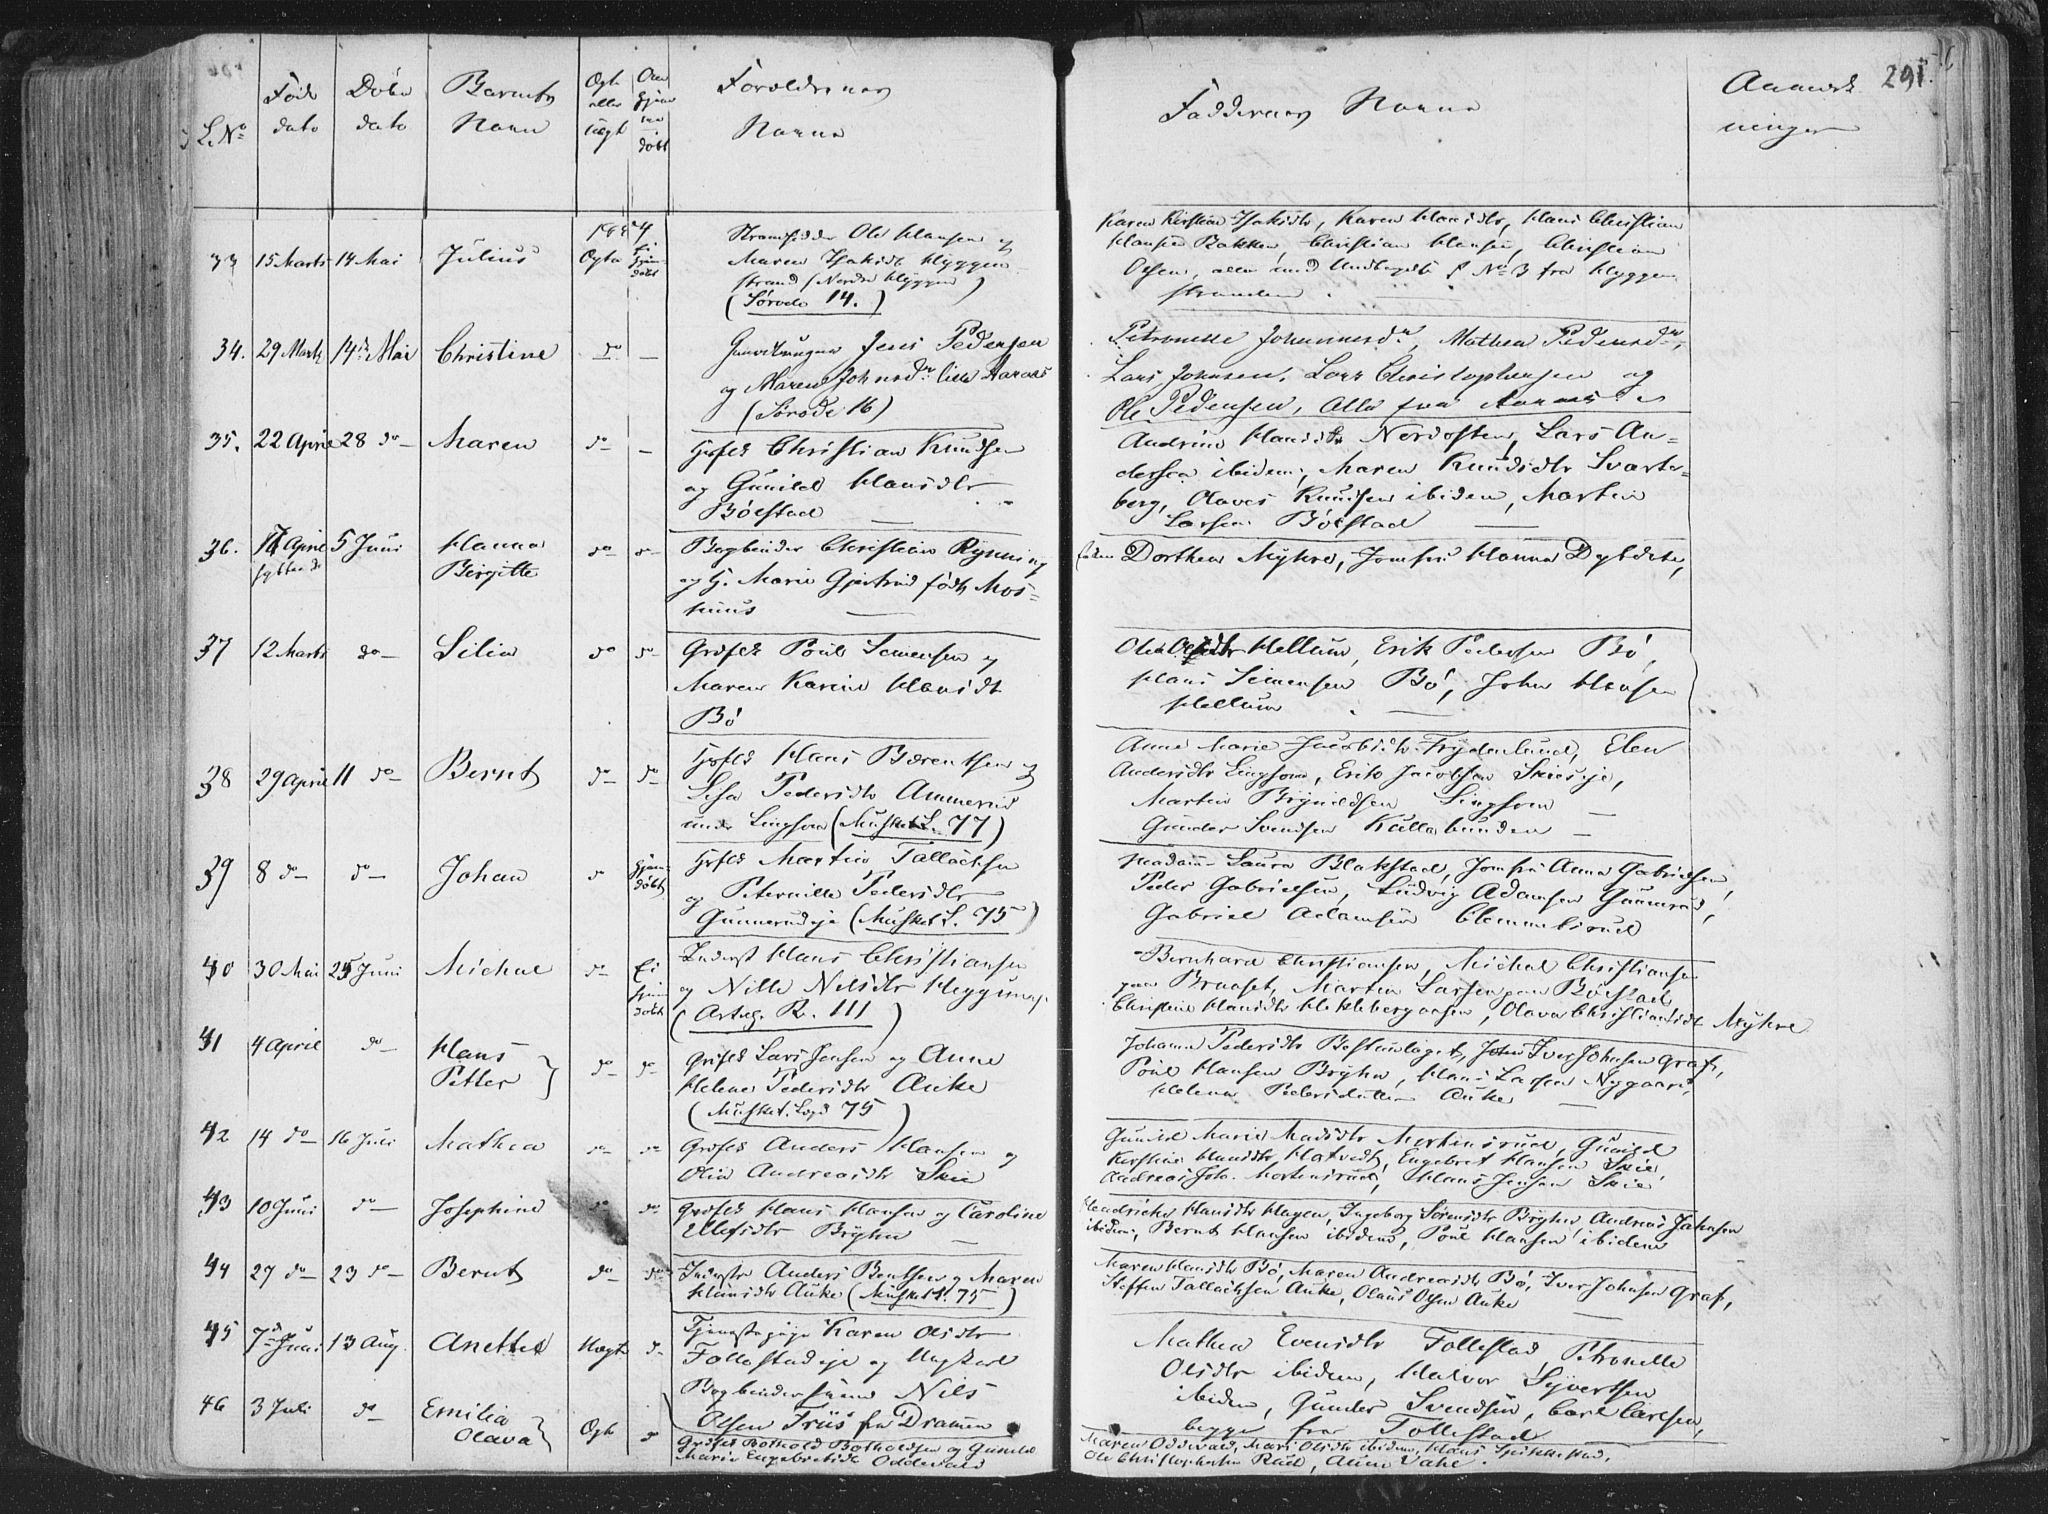 291.
L. No
Føde
dato
Døbe
dato
Barnets
Navn
Ægte
eller
Uægt
Om
Hjem
me
døbt
Forældrenes
Navne
Faddernes Navne
Anmærk
ninger
1854
33 15 Marts 14 Mai Julius Ægte Ei
hjem-
døbt
Strandsidder Ole Hansen og
Maren Isaksdtr Hyggen
strand (Nordre Hyggen)
(Sørode 14.)
Karen Kirstine Isaksdtr, Karen Hansdtr, Hans Christian
Hansen Bakken, Christian Hansen, Christian
Olsen, alle med Undtagelse f No 3 fra Hyggen
stranden.
34. 29 Marts 14de Mai Christine do —
Jens Pedersen
og Maren Johnsdr. lille Aaraas
(Sørode 16)
Petronelle Johannesdr, Mathea Pedersdr,
Lars Johnsen, Lars Christophersen og
Ole Pedersen, Alle fra Aaraas
35. 22 April 28 do Maren do —
Husfdr Christian Knudsen
og Gunild Hansdtr
Bölstad —
Andrine Hansdtr Nordosten, Lars An=
dersen ibidem, Maren Knudsdtr Svarts=
berg, Olaves Knudsen ibidem, Martin
Larsen Bölstad —
36. 17 April 5 Juni Hanna
Birgitte do do
syttende
Bogbinder Christian Rynning
og H. Marie Gjertrud födt Mos=
huus —
Dorthea Myhre, Jomfru Hanna Dybdahl,
37 12 Marts do Silia do do
Grdfdr Poul Simensen og
Maren Karine Hansdtr
Bö
Olea Olsdtr Hellum, Erik Pedersen Bö,
Hans Simensen Bö, John Hansen
Hellum. —
38 29 April 11 do Bernt do do
Husfdr Hans Bærentsen og
Lisa Pedersdtr Ammerud
under Lingsom (Musket L. 77)
Anne Marie Jacobsdtr Frydenlund, Elen
Andersdtr Lingsom, Erik Jacobsen Skieseje,
Martin Brynildsen Lingsom —
Gunder Svendsen Kullebunden —
39 8 do do Johan do Hjem-
døbt
Husfdr Martin Tallachsen
og Peternille Pedersdtr
Gunnerudeje (Musket L. 75)
Madam Laura Blakstad, Jomfru Anna Gabrielsen,
Peder Gabrielsen, Ludvig Adamsen Gunnerud,
Gabriel Adamsen Clemmetsrud
40 30 Mai 25 Juni Michal do Ei
hjem
døbt
Inderst Hans Christiansen
og Nille Nilsdtr Heggum
(Artig. R. 111)
Bernhard Christiansen, Michal Christiansen
paa Braaset, Martin Larsen paa Bölstad,
Christine Hansdtr Hekleberg, Olava Christiansdtr Myhre
41 4 April do Hans
Petter } do do
Grdfdr Lars Jensen og Anne
Helene Pedersdtr Auke
(Musket. Lægd 75)
Johanne Pedersdtr Bestumlaget, Iver Johnsen Graf,
Poul Hansen Bryhn, Hans Larsen Nygaard,
Helena Pedersdatter Auke —
42 14 do 16 Juli Mathea do do
Grdfdr Anders Hansen og
Olia Andreasdtr Skie
Gunild Marie Madsdtr Mortensrud, Gunild
Kirstine Hansdtr Hatvedt, Engebret Hansen Skie,
Andreas Joh. Mortensrud, Hans Jensen Skie
43 10 Juni do Josephine do do
Grdfdr Hans Hansen og Caroline
Ellefsdtr Bryhn —
Hendrikke Hansdtr Hagen, Ingeborg Sörensdtr Bryhn, Andreas Johnsen
ibidem, Bernt Hansen ibidem, Poul Hansen ibidem
44 27 do 23 do Bernt do do
Inderste Anders Bentsen og Maren
Hansdtr Auke (Musket L. 75)
Maren Hansdtr Bö, Maren Andreasdtr Bö, Iver Johnsen Graf,
Steffen Tallachsen Auke, Olaus Olsen Auke
45 7de Juni 13 Aug. Anette Uægte do
Tjenestepige Karen Olsdtr
Follestadeje og Ungkarl
Bogbindersvend Nils
Olsen Friis fra Drammen
Mathea Evensdtr Follestad, Petronelle
Olsdtr ibidem, Halvor Syvertsen
ibidem, Gunder Svendsen, Carl Carlsen,
begge fra Follestad
46 3 Juli do Emilia
Olava } Ægte do
Grdfdr Bothold Botholdsen og Gunild
Marie Engebretsdtr Oddevald
Maren Oddevald, Mari Olsdtr ibidem, Hans Spikkestad,
Ole Christophersen Rud, Anne Dahl.